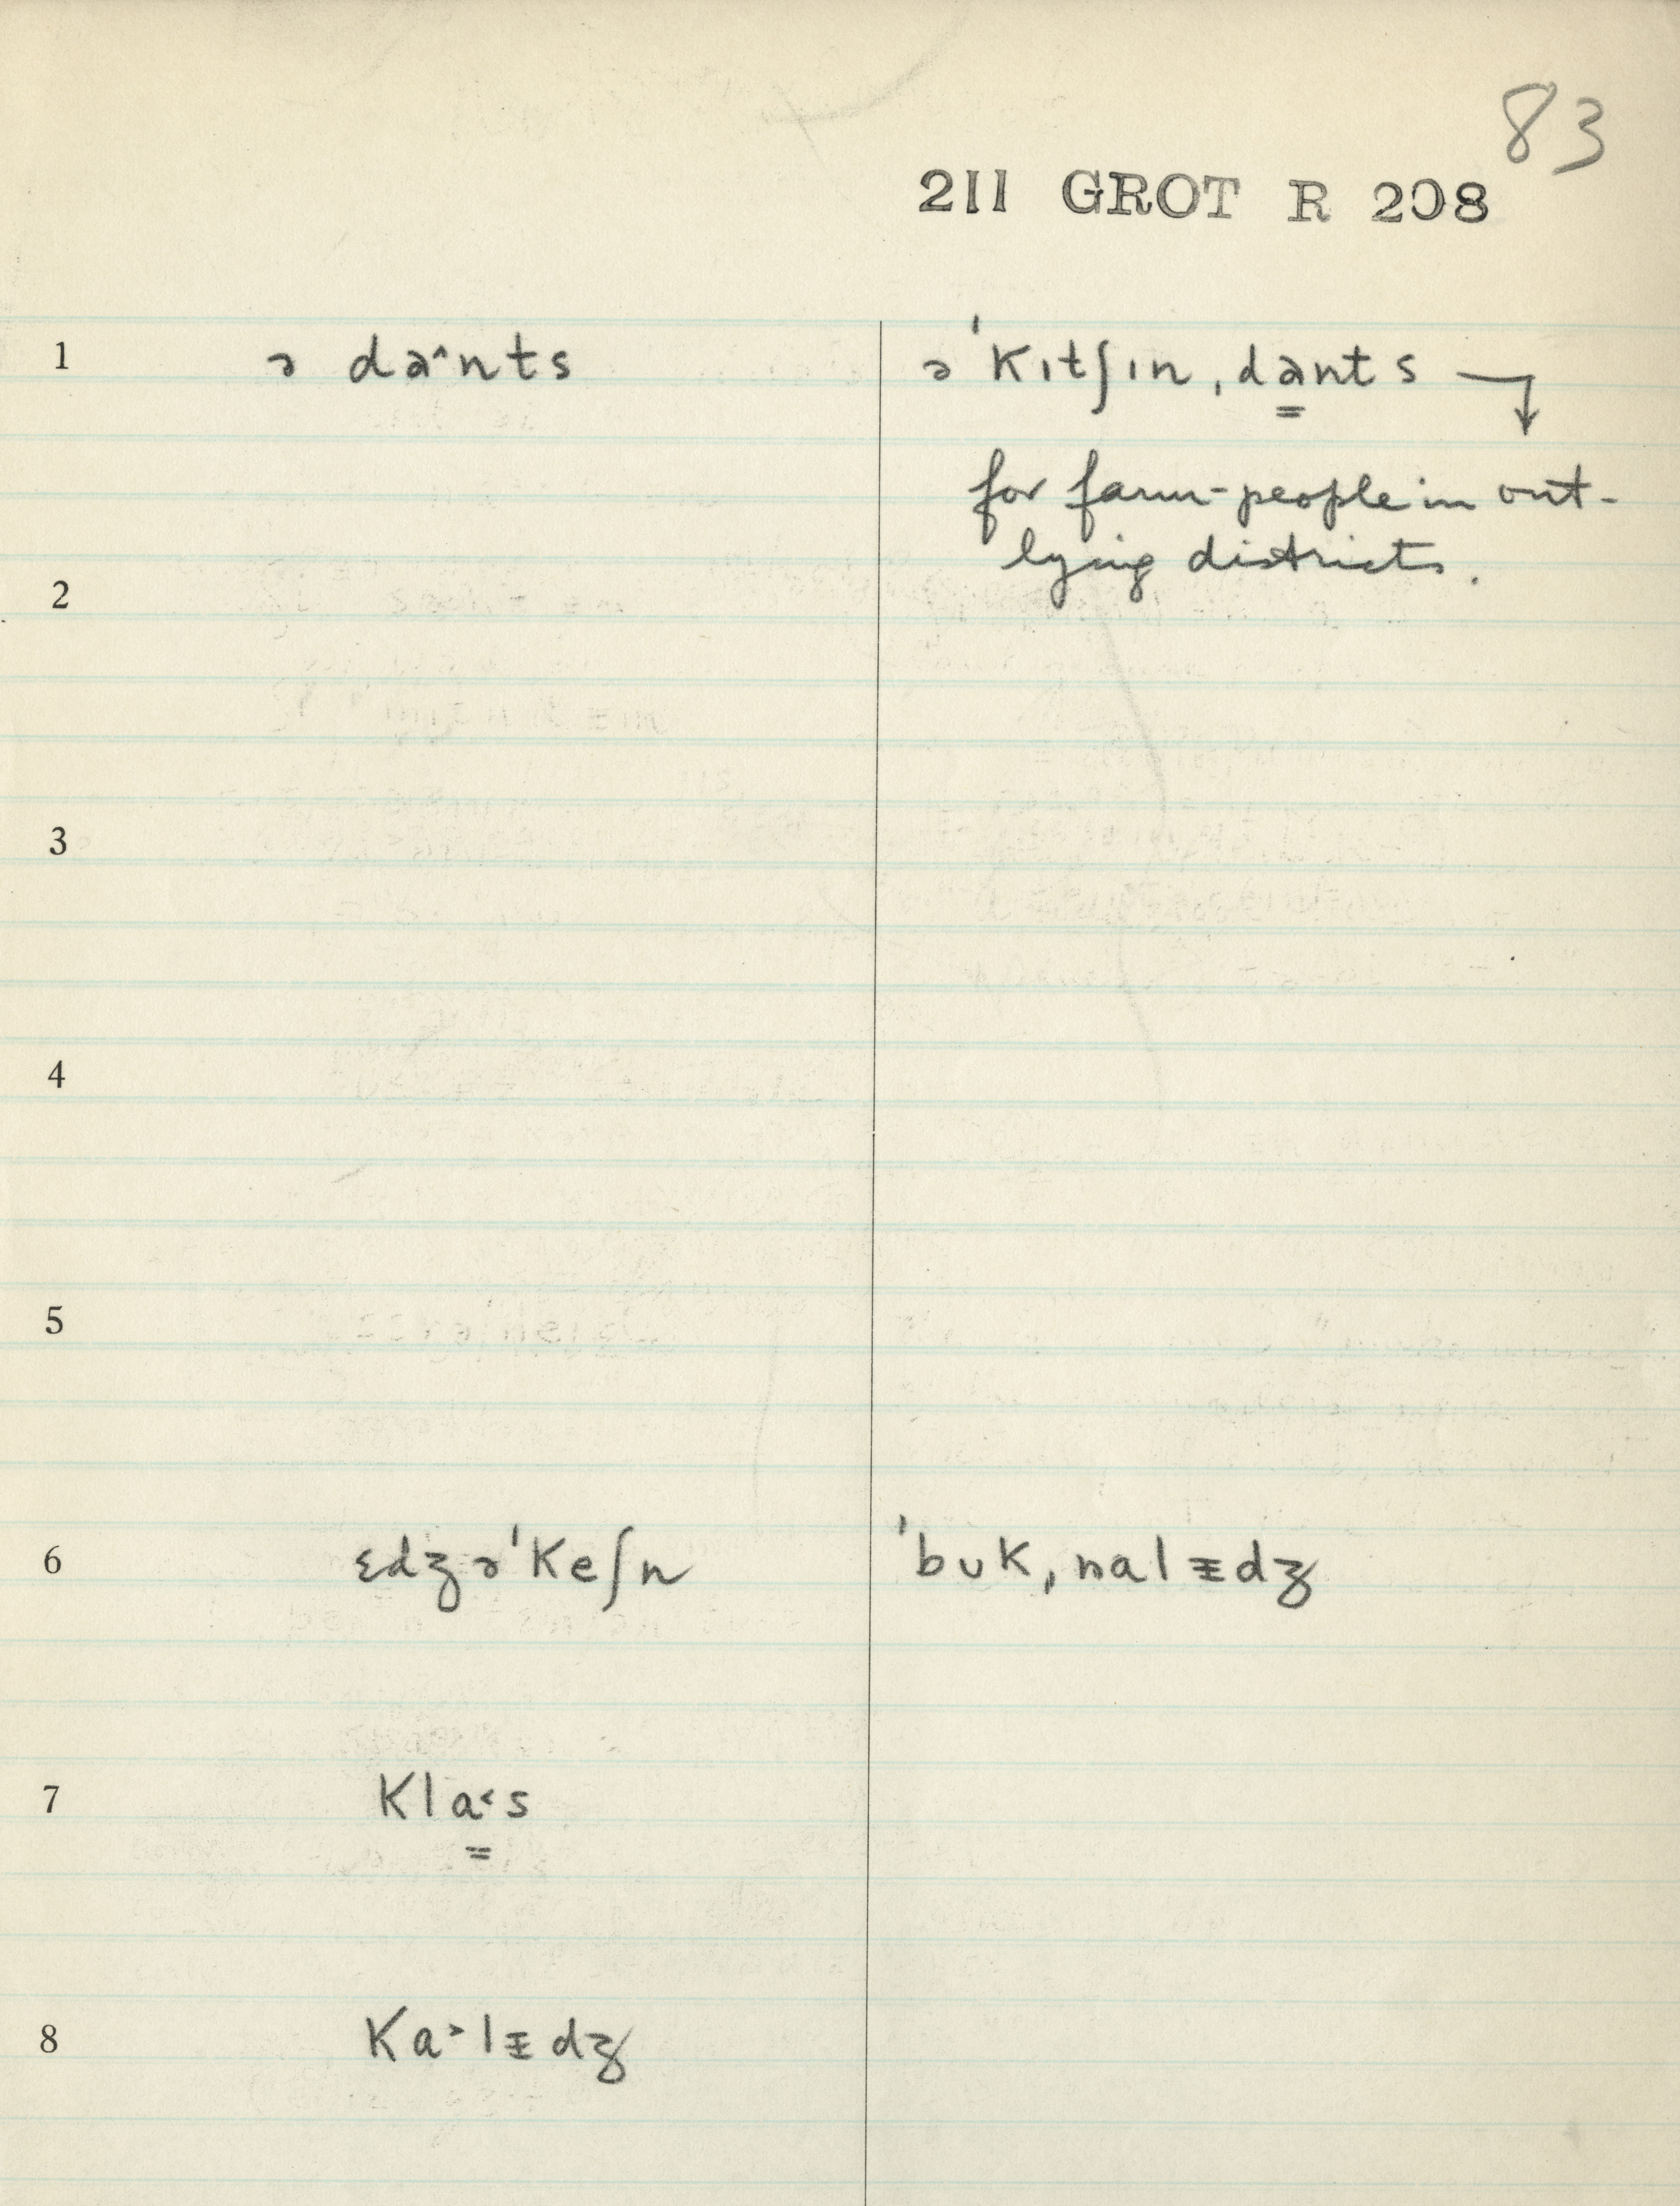 83
211 GROT R 208
1 ə da˄nts
ə ˈkɪtʃɪn ˌdants →
for farm-people in out-
lying districts.
2
3
4
5
6 ɛdʒəˈkeʃn ˈbʊkˌnalᵻdʒ
7 kla˂s
8 ka˃lᵻdʒ